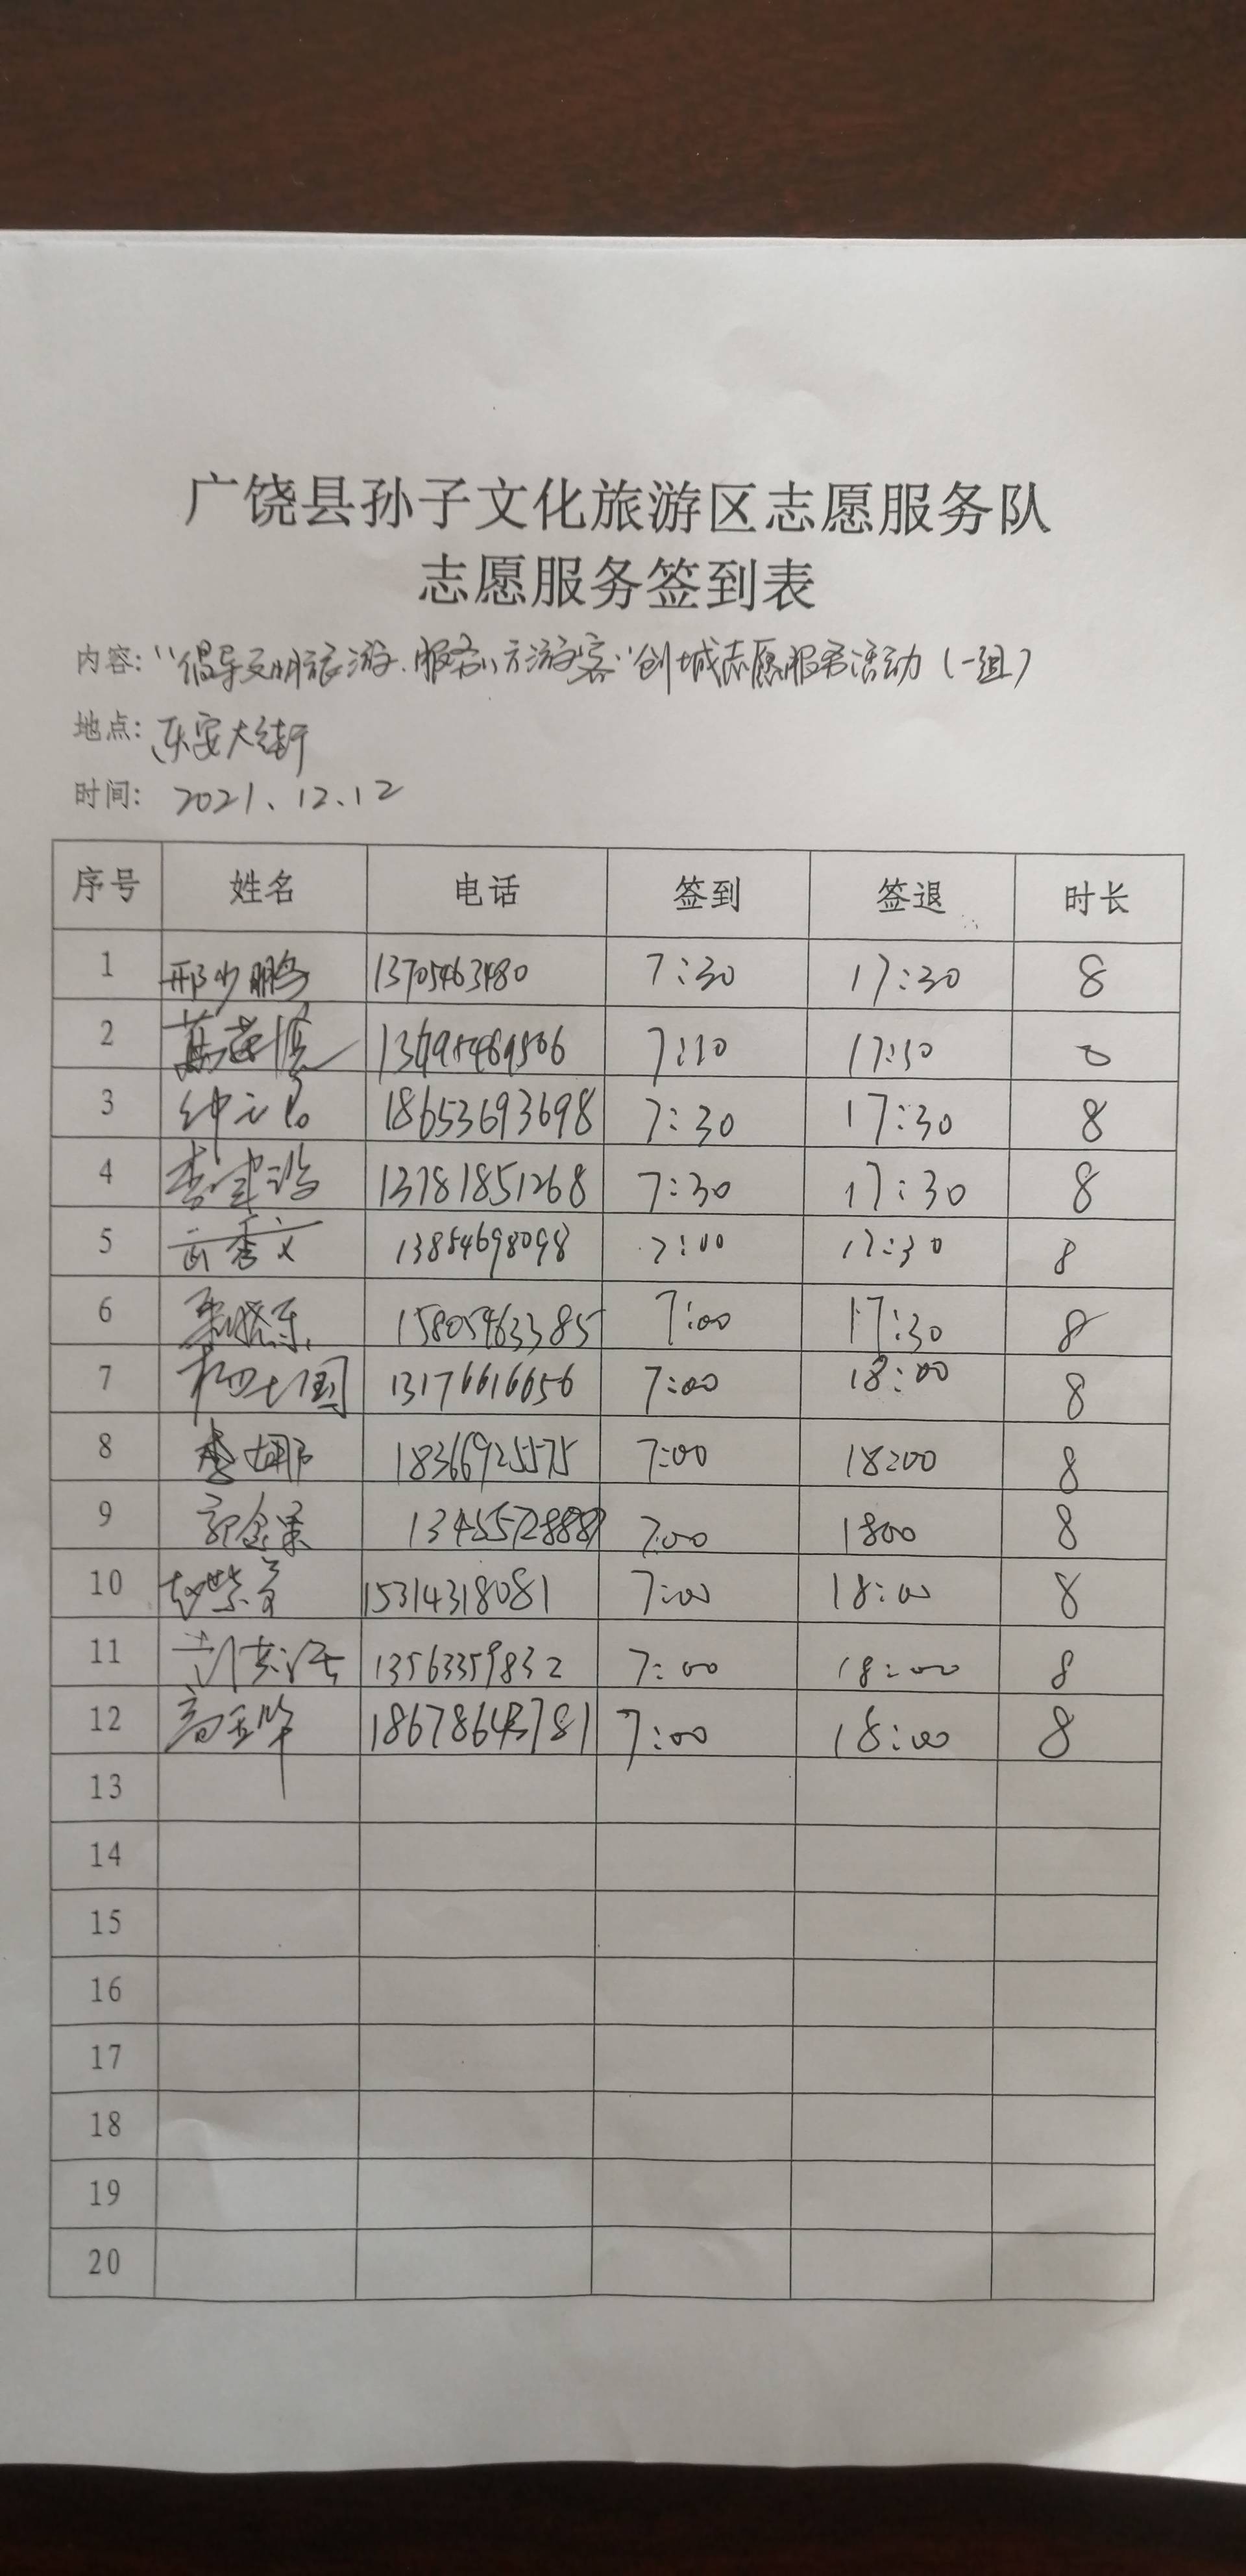 广饶县孙子文化旅游区志愿服务队
志愿服务签到表
内容：“倡导文明旅游、服务八方游客”创城志愿服务活动（一组）
地点：乐安大街
时间：2021.12.12
序号 姓名 电话 签到 签退 时长
1 邢少鹏 13705463480 7:30 17:30 8
2 7:30 17:30
3 18653693698 7:30 17:30 8
4 13781851268 7:30 17:30 8
5 13854698098 7:00 17:30 8
6 15805463385 7:00 17:30 8
7 13176616656 7:00 18:00 8
8 李娜 18366925575 7:00 18:00 8
9 7:00 1800 8
10 15314318081 7:00 18:00 8
11 13563359832 7:00 18:00 8
12 高玉华 18678643781 7:00 18:00 8
13
14
15
16
17
18
19
20